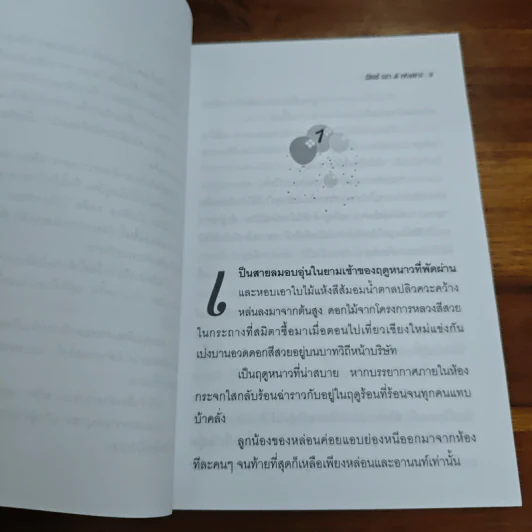 1
เป็นสายลมอบอุ่นในยามเช้าของฤดูหนาวที่พัดผ่าน
และหอบเอาใบไม้แห้งสีส้มอมน้ำตาลปลิวคว้างคว้าง
หล่นลงมาจากต้นสูง ดอกไม้จากโครงการหลวงสีสวย
ในกระถางที่สมิตาซื้อมาเมื่อตอนไปเที่ยวเชียงใหม่แข่งกัน
เบ่งบานอวดดอกสีสวยอยู่บนบาทวิถีหน้าบริษัท
เป็นฤดูหนาวที่น่าสบาย หากบรรยากาศภายในห้อง
กระจกใสกลับร้อนฉ่าราวกับอยู่ในฤดูร้อนที่ร้อนจนทุกคนแทบ
บ้าคลั่ง
ลูกน้องของหล่อนค่อยแอบย่องหนีออกมาจากห้อง
ทีละคนๆ จนท้ายที่สุดก็เหลือเพียงหล่อนและอานนท์เท่านั้น